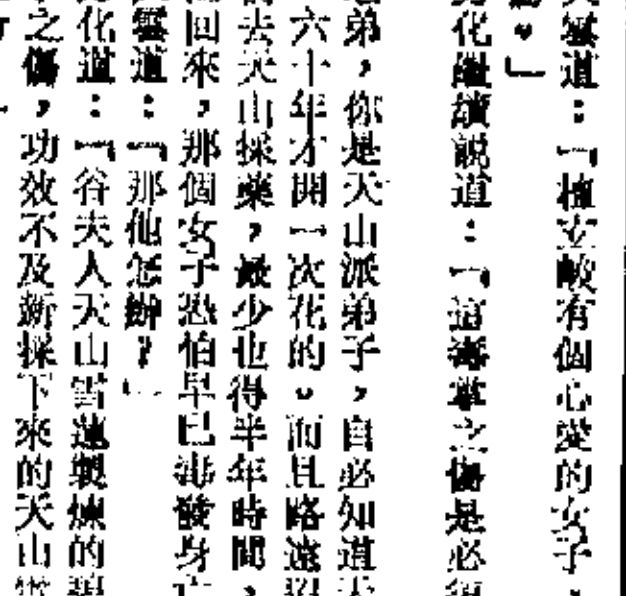 雲道：「檀玄峻有個心愛的女子，
。」
化繼續說道：「這毒掌之傷是必須
弟，你是天山派弟子，自必知道天
六十年才開一次花的。而且路遠迢
去天山採藥，最少也得半年時間，
回來，那個女子恐怕早已毒發身亡
雲道：「那他怎辦？」
化道：「谷夫人天山雪蓮製煉的碧
之傷，功效不及新採下來的天山雪